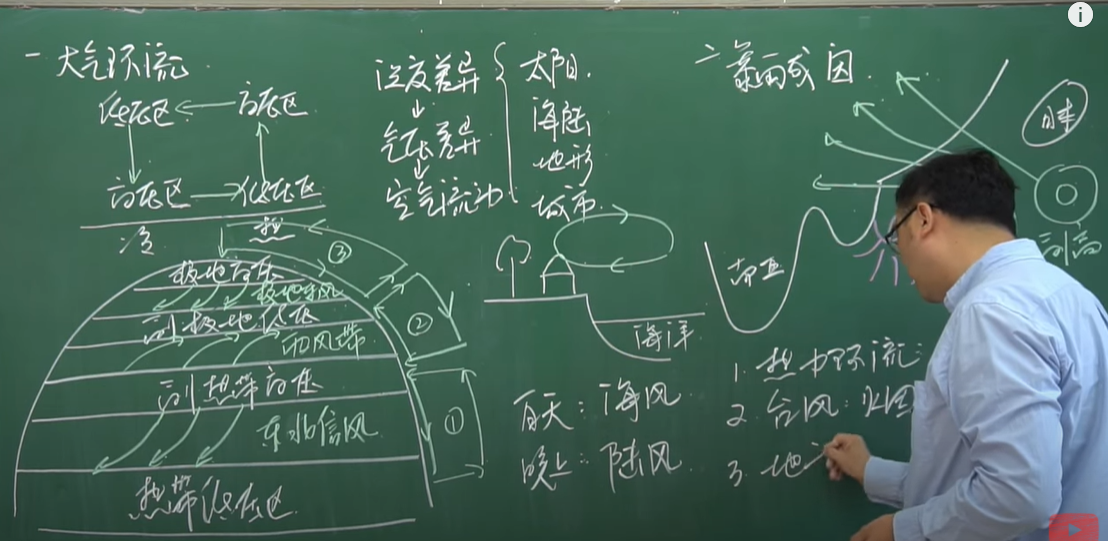 一 大气环流
低压区 高压区
高压区 低压区
冷 热
③
极地高压
极地东风
副极地低压
②
西风带
副热带高压
东北信风
①
热带低压区
温度差异
气压差异
空气流动
太阳
海陆
地形
城市
海洋
白天：海风
晚上：陆风
二 暴雨成因
副高
南亚
1. 热力环流
2. 台风：
3. 地